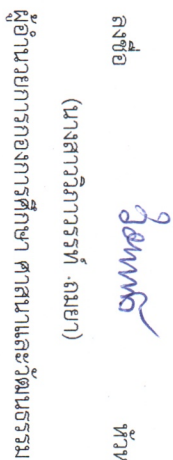 ลงชื่อ หัวห
(นางสาววิภาวรรท์ ถมยา)
ผู้อำนวยการกองการศึกษา ศาสนาและวัฒนธรรม